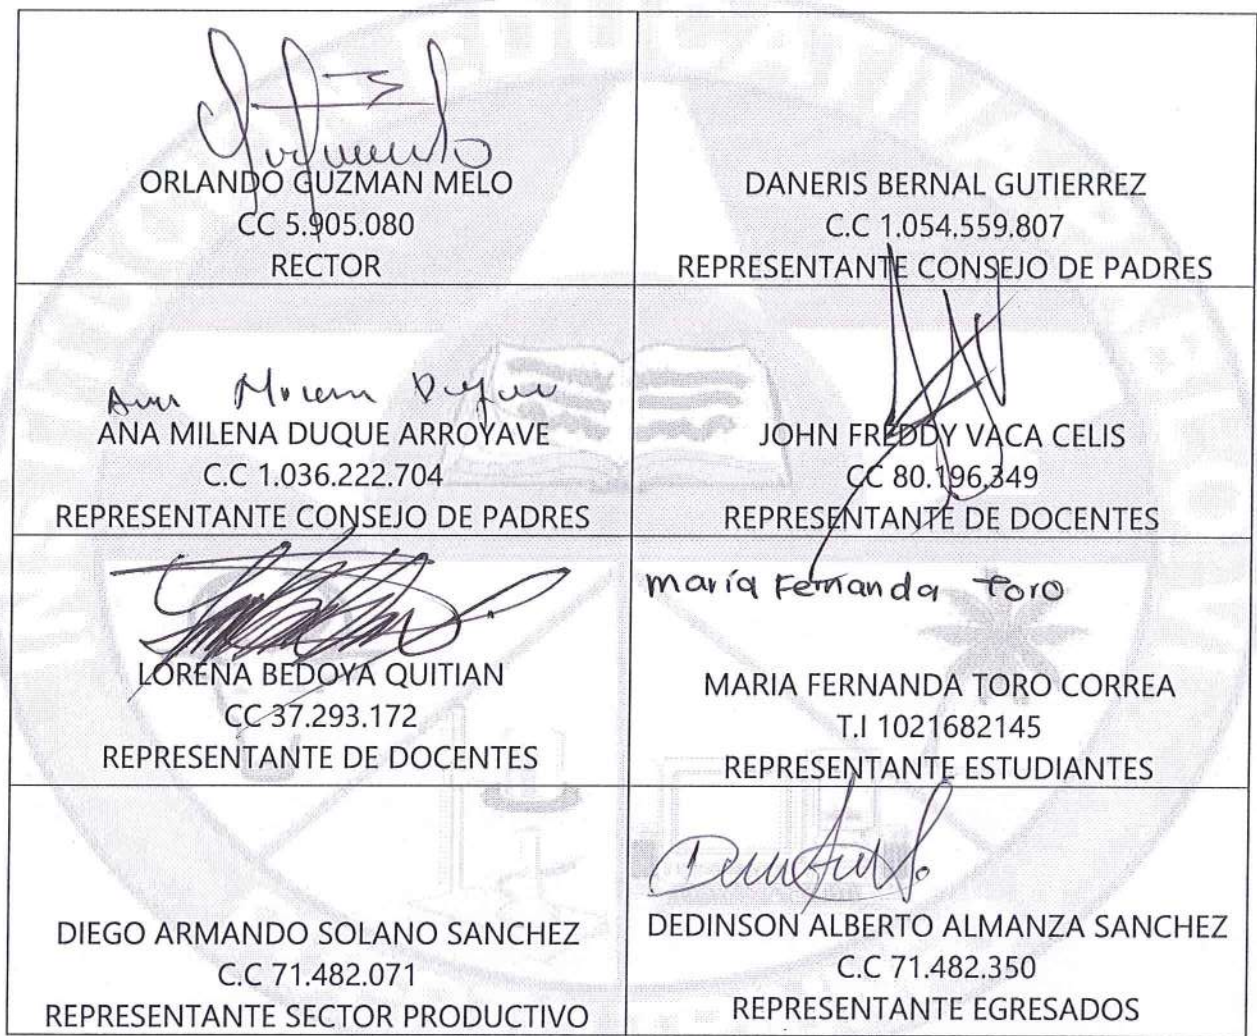 ORLANDO GUZMAN MELO
CC 5.905.080
RECTOR
DANERIS BERNAL GUTIERREZ
C.C 1.054.559.807
REPRESENTANTE CONSEJO DE PADRES
ANA MILENA DUQUE ARROYAVE
C.C 1.036.222.704
REPRESENTANTE CONSEJO DE PADRES
JOHN FREDDY VACA CELIS
CC 80.196.349
REPRESENTANTE DE DOCENTES
LORENA BEDOYA QUITIAN
CC 37.293.172
REPRESENTANTE DE DOCENTES
maría Fernanda Toro
MARIA FERNANDA TORO CORREA
T.I 1021682145
REPRESENTANTE ESTUDIANTES
DIEGO ARMANDO SOLANO SANCHEZ
C.C 71.482.071
REPRESENTANTE SECTOR PRODUCTIVO
DEDINSON ALBERTO ALMANZA SANCHEZ
C.C 71.482.350
REPRESENTANTE EGRESADOS